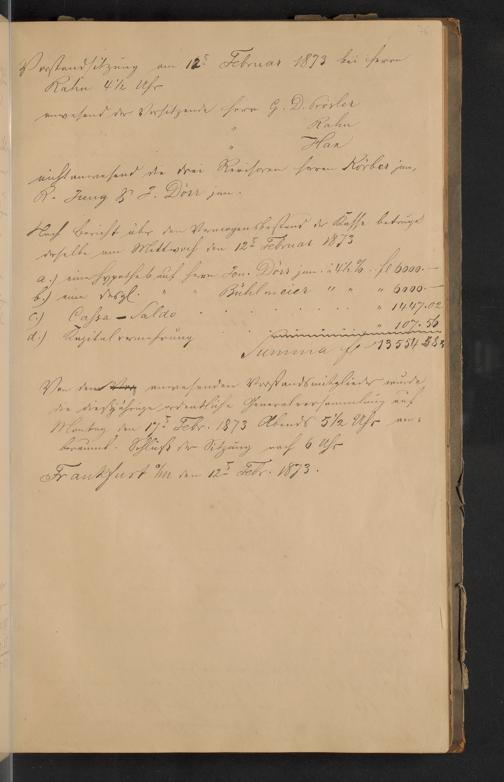 76
Vorstandssitzung am 12t Februar 1873 bei Herrn
Rahn 4½ Uhr
anwesend der Vorsitzende Herr G. D. Rösler
" Rahn
" Hax
nicht anwesend die drei Revisoren Herren Körber jun,
K. Jung & J. Dörr jun.
Nach Bericht über den Vermögensbestand der Kasse beträgt
derselbe am Mittwoch den 12t Februar 1873
a.) eine Hypothek auf Herrn Joh. Dörr jun. à 4½ % .. fl 6000.—
b.) eine desgl. " " Bühlmeier " " " " 6000.—
c.) Cassa-Saldo . . . . . . . " 1447.02
d.) Kapitalvermehrung " 107.56
Summa fl 13554.58
Von den anwesenden Vorstandsmitglieder wurde
die diesjährige ordentliche Generalversammlung auf
Montag den 17t Febr. 1873 Abends 5½ Uhr an-
beraumt. Schluß der Sitzung nach 6 Uhr
Frankfurt a/M den 12t Febr. 1873.